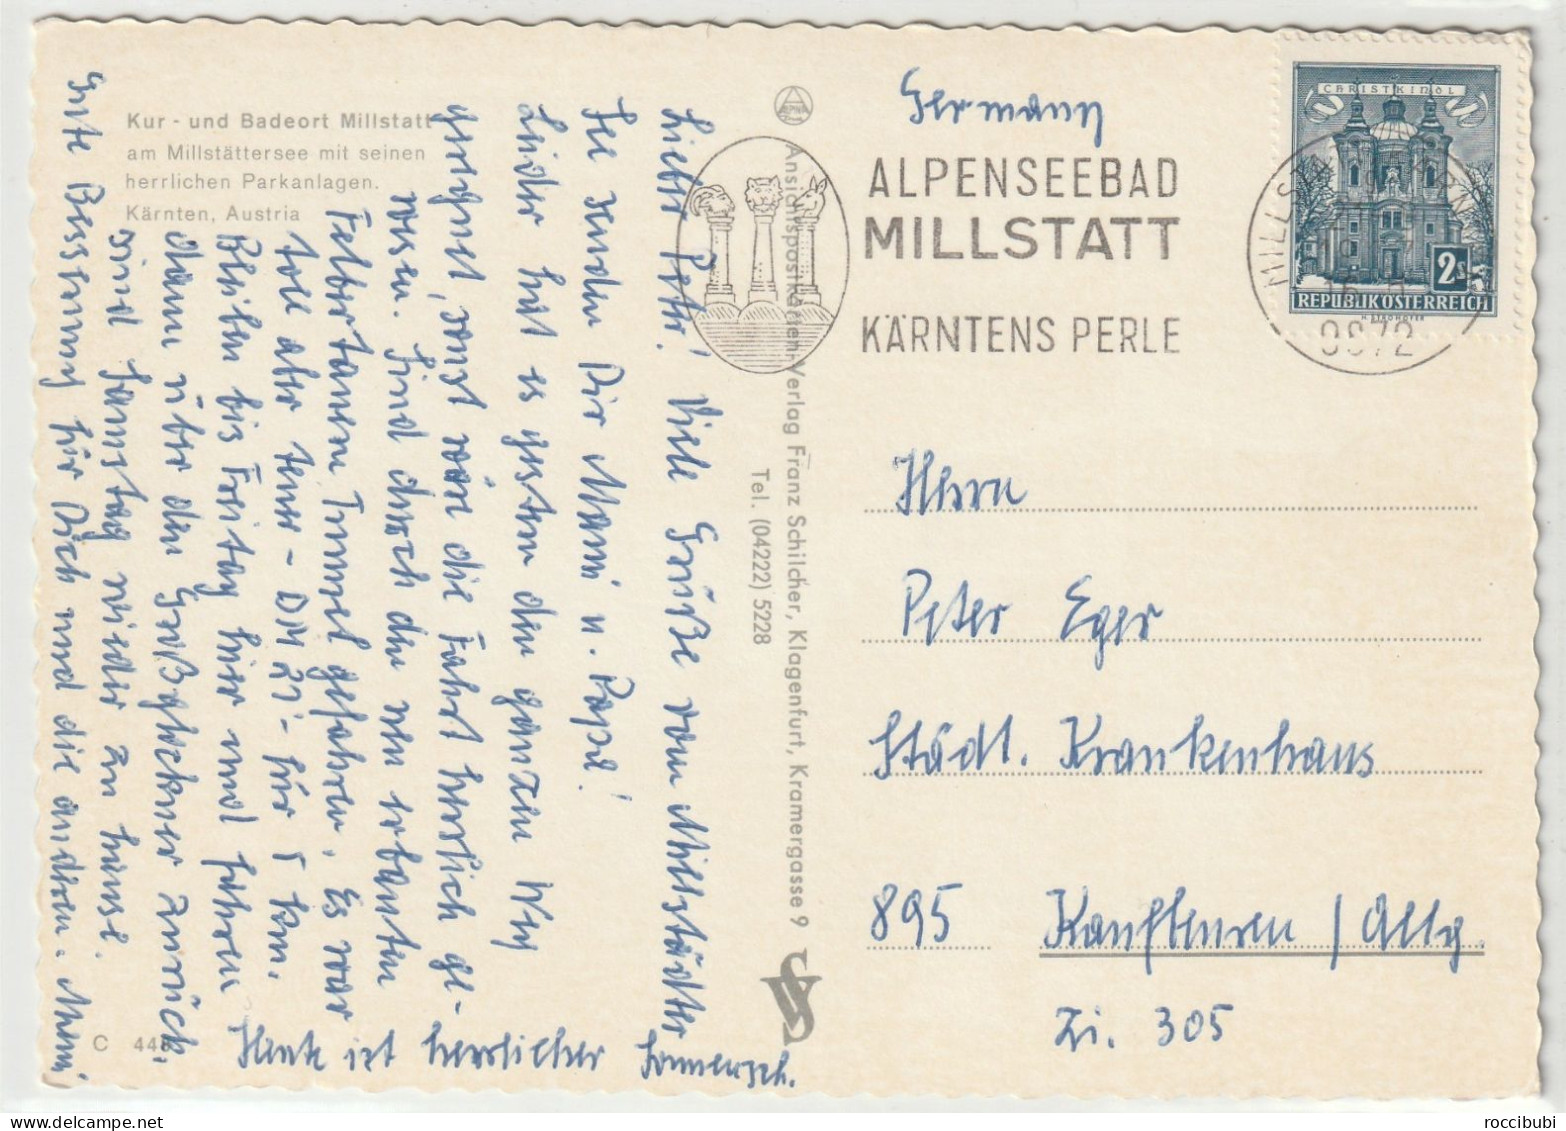 Kur - und Badeort Millstatt
am Millstättersee mit seinen
herrlichen Parkanlagen.
Kärnten, Austria
Lieber Peter! Viele Grüße vom Millstädter
See senden Dir Mami u. Papa!
Leider hat es gestern den ganzen Weg
geregnet, sonst wär die Fahrt herrlich ge-
wesen. Sind durch den neu erbauten
Felbertauern Tunnel gefahren. Es war
toll aber teuer - DM 21.- für 5 km.
Bleiben bis Freitag hier und fahren
dann über den Großglockner zurück.
sind Samstag wieder zu hause.
Gute Besserung für Dich und die andern. Mami
Heute ist herrlicher Sonnensch.
C 448
Ansichtspostkarten-Verlag Franz Schilcher, Klagenfurt, Kramergasse 9
Tel. (04222) 5228
Germany
ALPENSEEBAD
MILLSTATT
KÄRNTENS PERLE
CHRISTKINDL
2s
REPUBLIK ÖSTERREICH
H. STROHOFER
MILLSTATT
9872
Herrn
Peter Eger
Städt. Krankenhaus
895 Kaufbeuren / Allg
Zi. 305
roccibubi